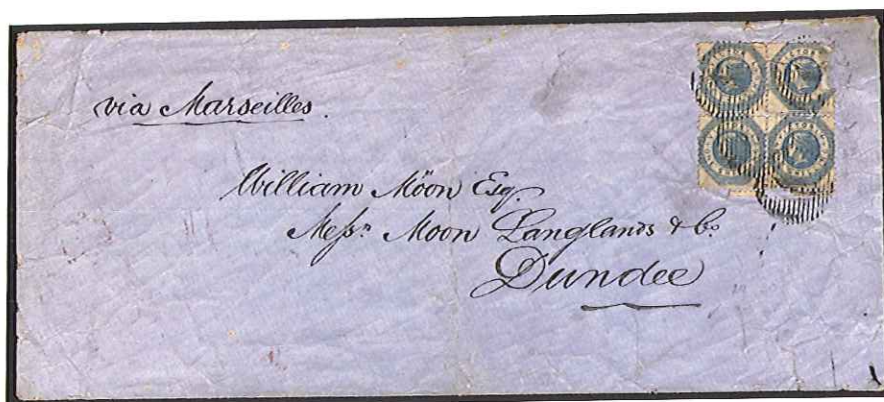 via Marseilles.
William Möon Esq.
Messrs Moon Langlands & Co.
Dundee